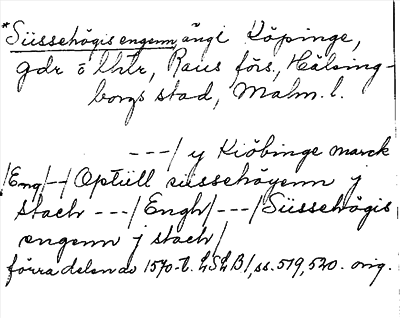 *Süssehögis engenn, ängl Köpinge,
gdr o lhlr, Raus förs., Hälsing-
borgs stad, Malm. l.
---/ y Kiöbinge marck
/Eng/--/ Optüll süssehöyenn j
stach ---/ Engh/---/ Süssehögis
engenn j stach/
förra delen av 1570-t. LSLB/, ss. 519, 520. orig.